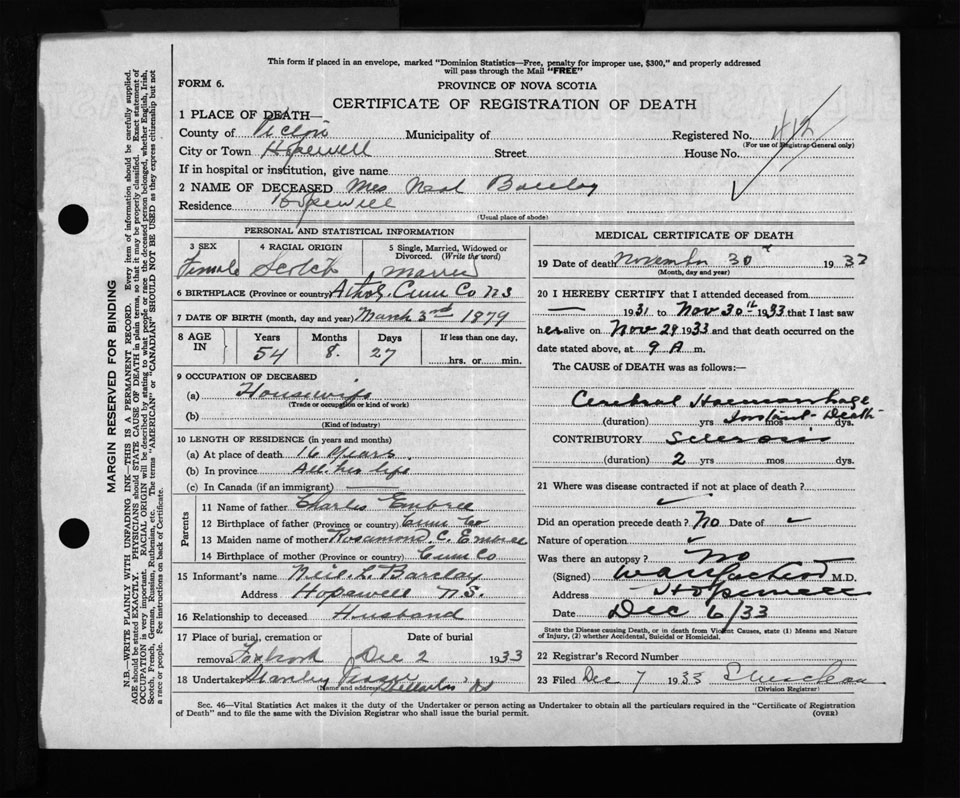 This form if placed in an envelope, marked "Dominion Statistics—Free, penalty for improper use, $300," and properly addressed
will pass through the Mail "FREE"
FORM 6.
PROVINCE OF NOVA SCOTIA
CERTIFICATE OF REGISTRATION OF DEATH
1 PLACE OF DEATH—
County of Pictou Municipality of Registered No. 412
(For use of Registrar-General only)
City or Town Hopewell Street House No.
If in hospital or institution, give name
2 NAME OF DECEASED Mrs Neal Barclay
Residence Hopewell
(Usual place of abode)
MARGIN RESERVED FOR BINDING
N.B.—WRITE PLAINLY WITH UNFADING INK—THIS IS A PERMANENT RECORD. Every item of information should be carefully supplied.
AGE should be stated EXACTLY. PHYSICIANS should STATE CAUSE OF DEATH in plain terms, so that it may be properly classified. Exact statement of
OCCUPATION is very important. RACIAL ORIGIN will be described by stating to what people or race the deceased person belonged, whether English, Irish,
Scotch, French, German, Russian, Ruthenian, etc. The terms "AMERICAN" or "CANADIAN" SHOULD NOT BE USED as they express citizenship but not
a race or people. Fee instructions on back of Certificate.
PERSONAL AND STATISTICAL INFORMATION
3 SEX 4 RACIAL ORIGIN 5 Single, Married, Widowed or
Divorced. (Write the word)
Female Scotch Married
6 BIRTHPLACE (Province or country) Athol. Cum Co NS
7 DATE OF BIRTH (month, day and year) March 3rd 1879
8 AGE IN Years Months Days If less than one day,
54 8. 27 hrs. or min.
9 OCCUPATION OF DECEASED
(a) Housewife
(Trade or occupation or kind of work)
(b)
(Kind of industry)
10 LENGTH OF RESIDENCE (in years and months)
(a) At place of death 16 years.
(b) In province All her life
(c) In Canada (if an immigrant)
Parents
11 Name of father Charles Embree
12 Birthplace of father (Province or country) Cum Co
13 Maiden name of mother Rosamond C. Embree
14 Birthplace of mother (Province or country) Cum Co
15 Informant's name Neil L. Barclay
Address Hopewell N.S.
16 Relationship to deceased Husband
17 Place of burial, cremation or Date of burial
removal Dec 2 1933
18 Undertaker Stanley
(Name and address)
MEDICAL CERTIFICATE OF DEATH
19 Date of death November 30th 1933
(Month, day and year)
20 I HEREBY CERTIFY that I attended deceased from
— 1931 to Nov 30th 1933 that I last saw
her alive on Nov 29 1933 and that death occurred on the
date stated above, at 9 A m.
The CAUSE of DEATH was as follows:—
Cerebral Haemorrhage
(duration) yrs Instant Death mos dys.
CONTRIBUTORY Sclerosis
(duration) 2 yrs mos dys.
21 Where was disease contracted if not at place of death?
Did an operation precede death? No Date of
Nature of operation
Was there an autopsy? No
(Signed) M.D.
Address Hopewell
Date Dec 6/33
State the Disease causing Death, or in death from Violent Causes, state (1) Means and Nature
of Injury, (2) whether Accidental, Suicidal or Homicidal.
22 Registrar's Record Number
23 Filed Dec 7 1933
(Division Registrar)
Sec. 46—Vital Statistics Act makes it the duty of the Undertaker or person acting as Undertaker to obtain all the particulars required in the "Certificate of Registration
of Death" and to file the same with the Division Registrar who shall issue the burial permit.
(OVER)